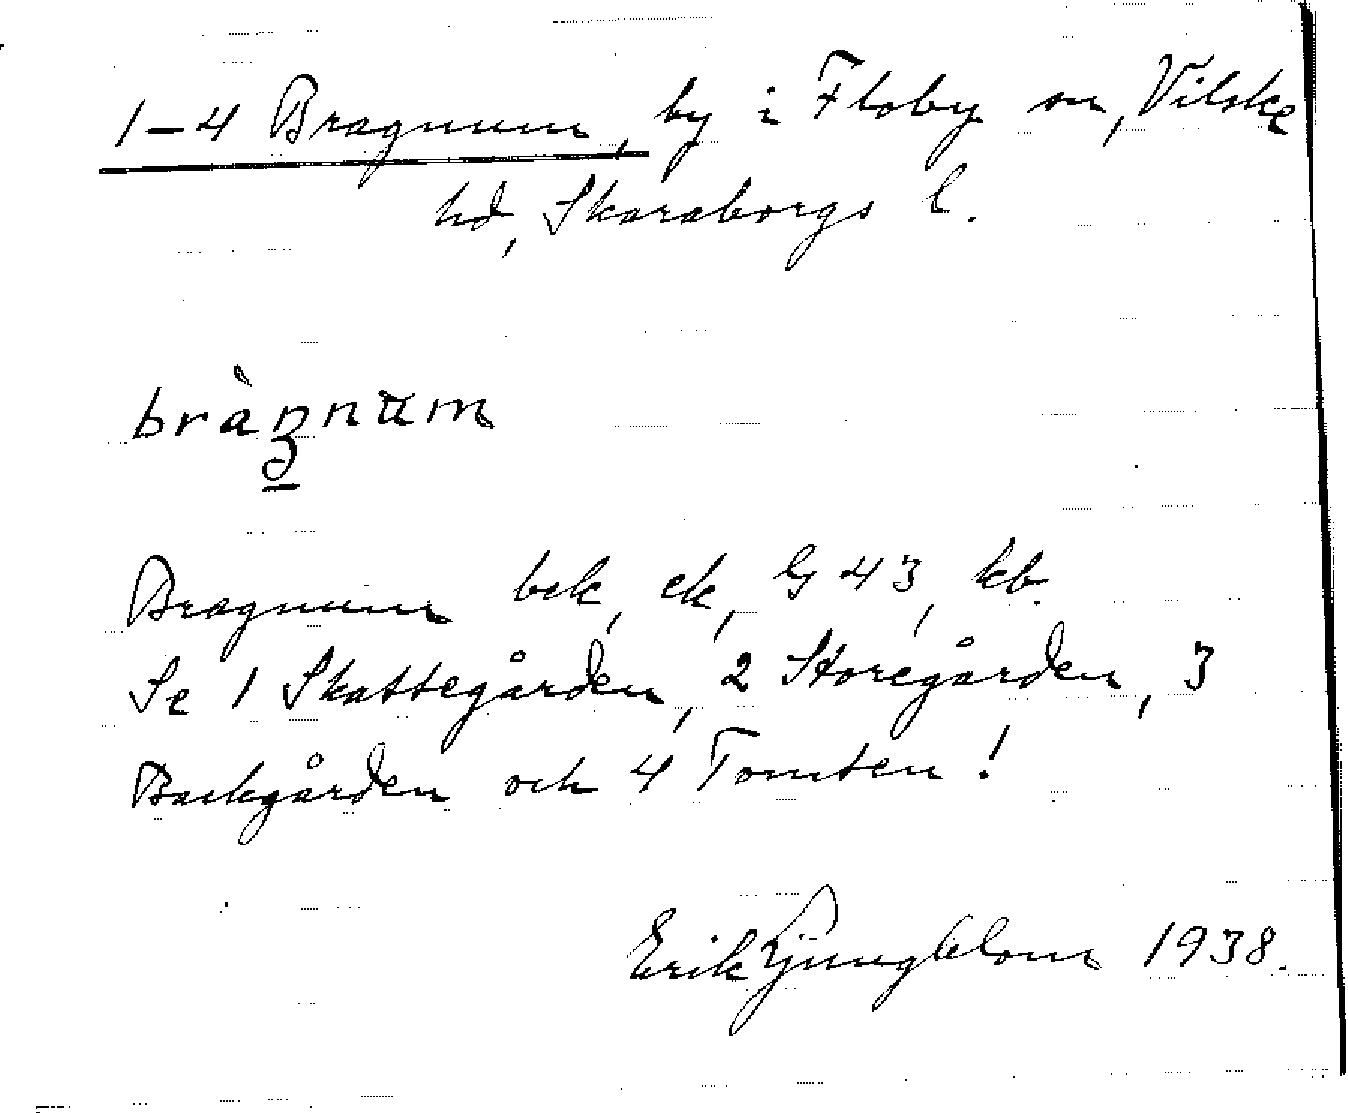 1–4 Bragnum, by i Floby sn, Vilske
hd, Skaraborgs l.
bràŋnum
Bragnum bek, ek, G 43, kb.
Se 1 Skattegården, 2 Storegården, 3
Backgården och 4 Tomten!
Erik Ljungblom 1938.